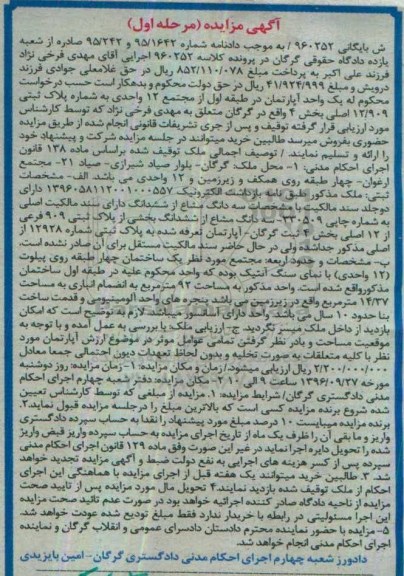 آگهی مزایده (مرحله اول)
ش بایگانی ۹۶۰۲۵۲ / به موجب دادنامه شماره ۹۵/۱۶۴۲ و ۹۵/۲۴۲ صادره از شعبه
یازده دادگاه حقوقی گرگان در پرونده کلاسه ۹۶۰۲۵۲ اجرایی آقای مهدی فرخی نژاد
فرزند علی اکبر به پرداخت مبلغ ۸۵۲/۱۱۰/۰۷۸ ریال در حق غلامعلی جوادی فرزند
درویش و مبلغ ۴۱/۹۲۴/۹۹۹ ریال در حق دولت محکوم و بدهکار است حسب درخواست
محکوم له یک واحد آپارتمان در طبقه اول از مجتمع ۱۲ واحدی به شماره پلاک ثبتی
۱۲/۹۰۹ اصلی بخش ۴ واقع در گرگان متعلق به مهدی فرخی نژاد که توسط کارشناس
مورد ارزیابی قرار گرفته توقیف و پس از جری تشریفات قانونی انجام شده از طریق مزایده
حضوری بفروش میرسد طالبین خرید میتوانند در جلسه مزایده شرکت و پیشنهاد خود
را ارائه و تسلیم نمایند. / توصیف اجمالی ملک توقیف شده براساس ماده ۱۳۸ قانون
اجرای احکام مدنی: ۱- محل ملک: گرگان- بلوار صیاد شیرازی- صیاد ۲۱- مجتمع
ارغوان- چهار طبقه روی همکف و زیرزمین و ۱۲ واحدی می باشد الف- مشخصات
ثبتی: ملک مذکور طبق نامه بازداشت الکترونیک ۱۳۹۶۰۵۸۱۱۲۰۰۱۰۰۰۵۵۷ دارای
دوجلد سند مالکیت با مشخصات سه دانگ مشاع از ششدانگ دارای سند مالکیت اصلی
به شماره چاپی ۳۳۰۵۰۹- سه دانگ مشاع از ششدانگ بخشی از پلاک ثبتی ۹۰۹ فرعی
از ۱۲ اصلی بخش ۴ ثبت گرگان- آپارتمان تعرفه شده به پلاک ثبتی شماره ۱۲۹۲۸ از
اصلی مذکور جداشده ولی در حال حاضر سند مالکیت مستقل برای آن صادر نشده است.
ب- مشخصات و حدود اربعه: مجتمع مورد نظر یک ساختمان چهار طبقه روی پیلوت
(۱۲ واحدی) با نمای سنگ آنتیک بوده که واحد محکوم علیه در طبقه اول ساختمان
مذکورواقع شده است. واحد مذکور به مساحت ۹۲ مترمربع به انضمام انباری به مساحت
۱۴/۳۷ مترمربع واقع در زیرزمین می باشد پنجره های واحد آلومینیومی و قدمت ساخت
بنا حدود ۱۰ سال می باشد. واحد دارای آسانسور میباشد لازم به توضیح است که امکان
بازدید از داخل ملک میسر نگردید. ج- ارزیابی ملک: با بررسی به عمل آمده و با توجه به
موقعیت مساحت و بادر نظر گرفتن تمامی عوامل موثر در موضوع ارزش آپارتمان مورد
نظر با کلیه متعلقات به صورت تخلیه و بدون لحاظ تعهدات دیون احتمالی جمعا معادل
۲/۲۰۰/۰۰۰/۰۰۰ ریال ارزیابی میشود./زمان و مکان مزایده: ۱- زمان مزایده: روز دوشنبه
مورخه ۱۳۹۶/۰۹/۲۷ ساعت ۹ الی ۱۰ ۲- مکان مزایده: دفتر شعبه چهارم اجرای احکام
مدنی دادگستری گرگان/ شرایط مزایده: ۱. مزایده از مبلغی که توسط کارشناس تعیین
شده شروع برنده مزایده کسی است که بالاترین مبلغ را درجلسه مزایده قبول نماید.۲.
برنده مزایده میبایست ۱۰ درصد مبلغ مورد پیشنهاد را نقدا به حساب سپرده دادگستری
واریز و ما بقی آن را ظرف یک ماه از تاریخ اجرای مزایده به حساب سپرده واریز قبض واریز
شده را تحویل دایره اجرا نماید در غیر این صورت وفق ماده ۱۲۹ قانون اجرای احکام مدنی
سپرده پس از کسر هزینه های اجرایی به نفع دولت ضبط و آگهی مزایده تجدید خواهد
شد. ۳. طالبین خرید میتوانند یک هفته قبل از اجرای مزایده با هماهنگی این اجرای
احکام از ملک توقیف شده بازدید نمایند.۴ تحویل مال مورد مزایده پس از تایید صحت
مزایده از ناحیه دادگاه صادر کننده اجرائیه خواهد بود در صورت عدم تائید صحت مزایده
این اجرا مسئولیتی در رابطه با خریدار ندارد فقط مبلغ تودیع شده عودت خواهد شد.
۵- مزایده با حضور نماینده محترم دادستان دادسرای عمومی و انقلاب گرگان و نماینده
اجرای احکام مدنی انجام خواهد شد.
دادورز شعبه چهارم اجرای احکام مدنی دادگستری گرگان- امین بایزیدی